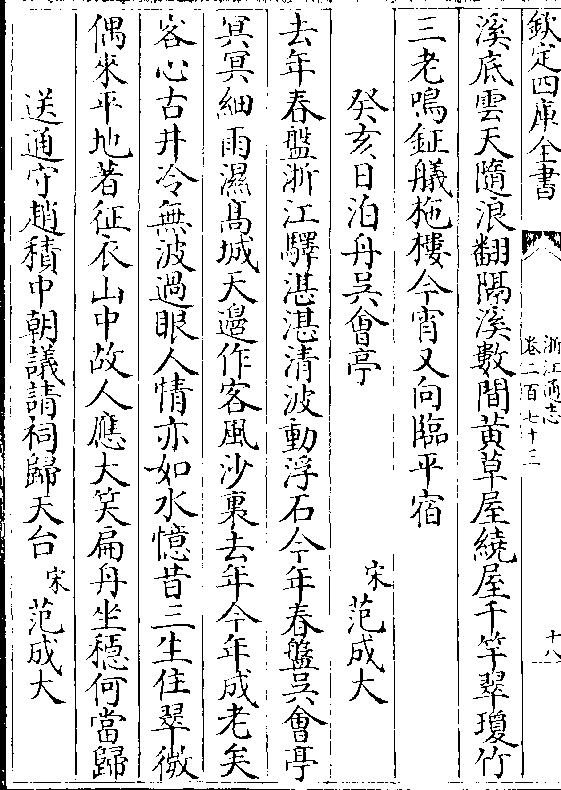 欽定四庫全書
浙江通志
卷二百七十三
十八
溪底雲天隨浪翻隔溪數間黃草屋繞屋千竿翠瓊竹
三老鳴鉦艤柂樓今宵又向臨平宿
癸亥日泊舟吳會亭
宋范成大
去年春盤浙江驛湛湛清波動浮石今年春盤吳會亭
冥冥細雨濕髙城天邉作客風沙裏去年今年成老矣
客心古井冷無波過眼人情亦如水憶昔三生住翠微
偶來平地著征衣山中故人應大笑扁舟坐穏何當歸
送通守趙積中朝議請祠歸天台
宋范成大